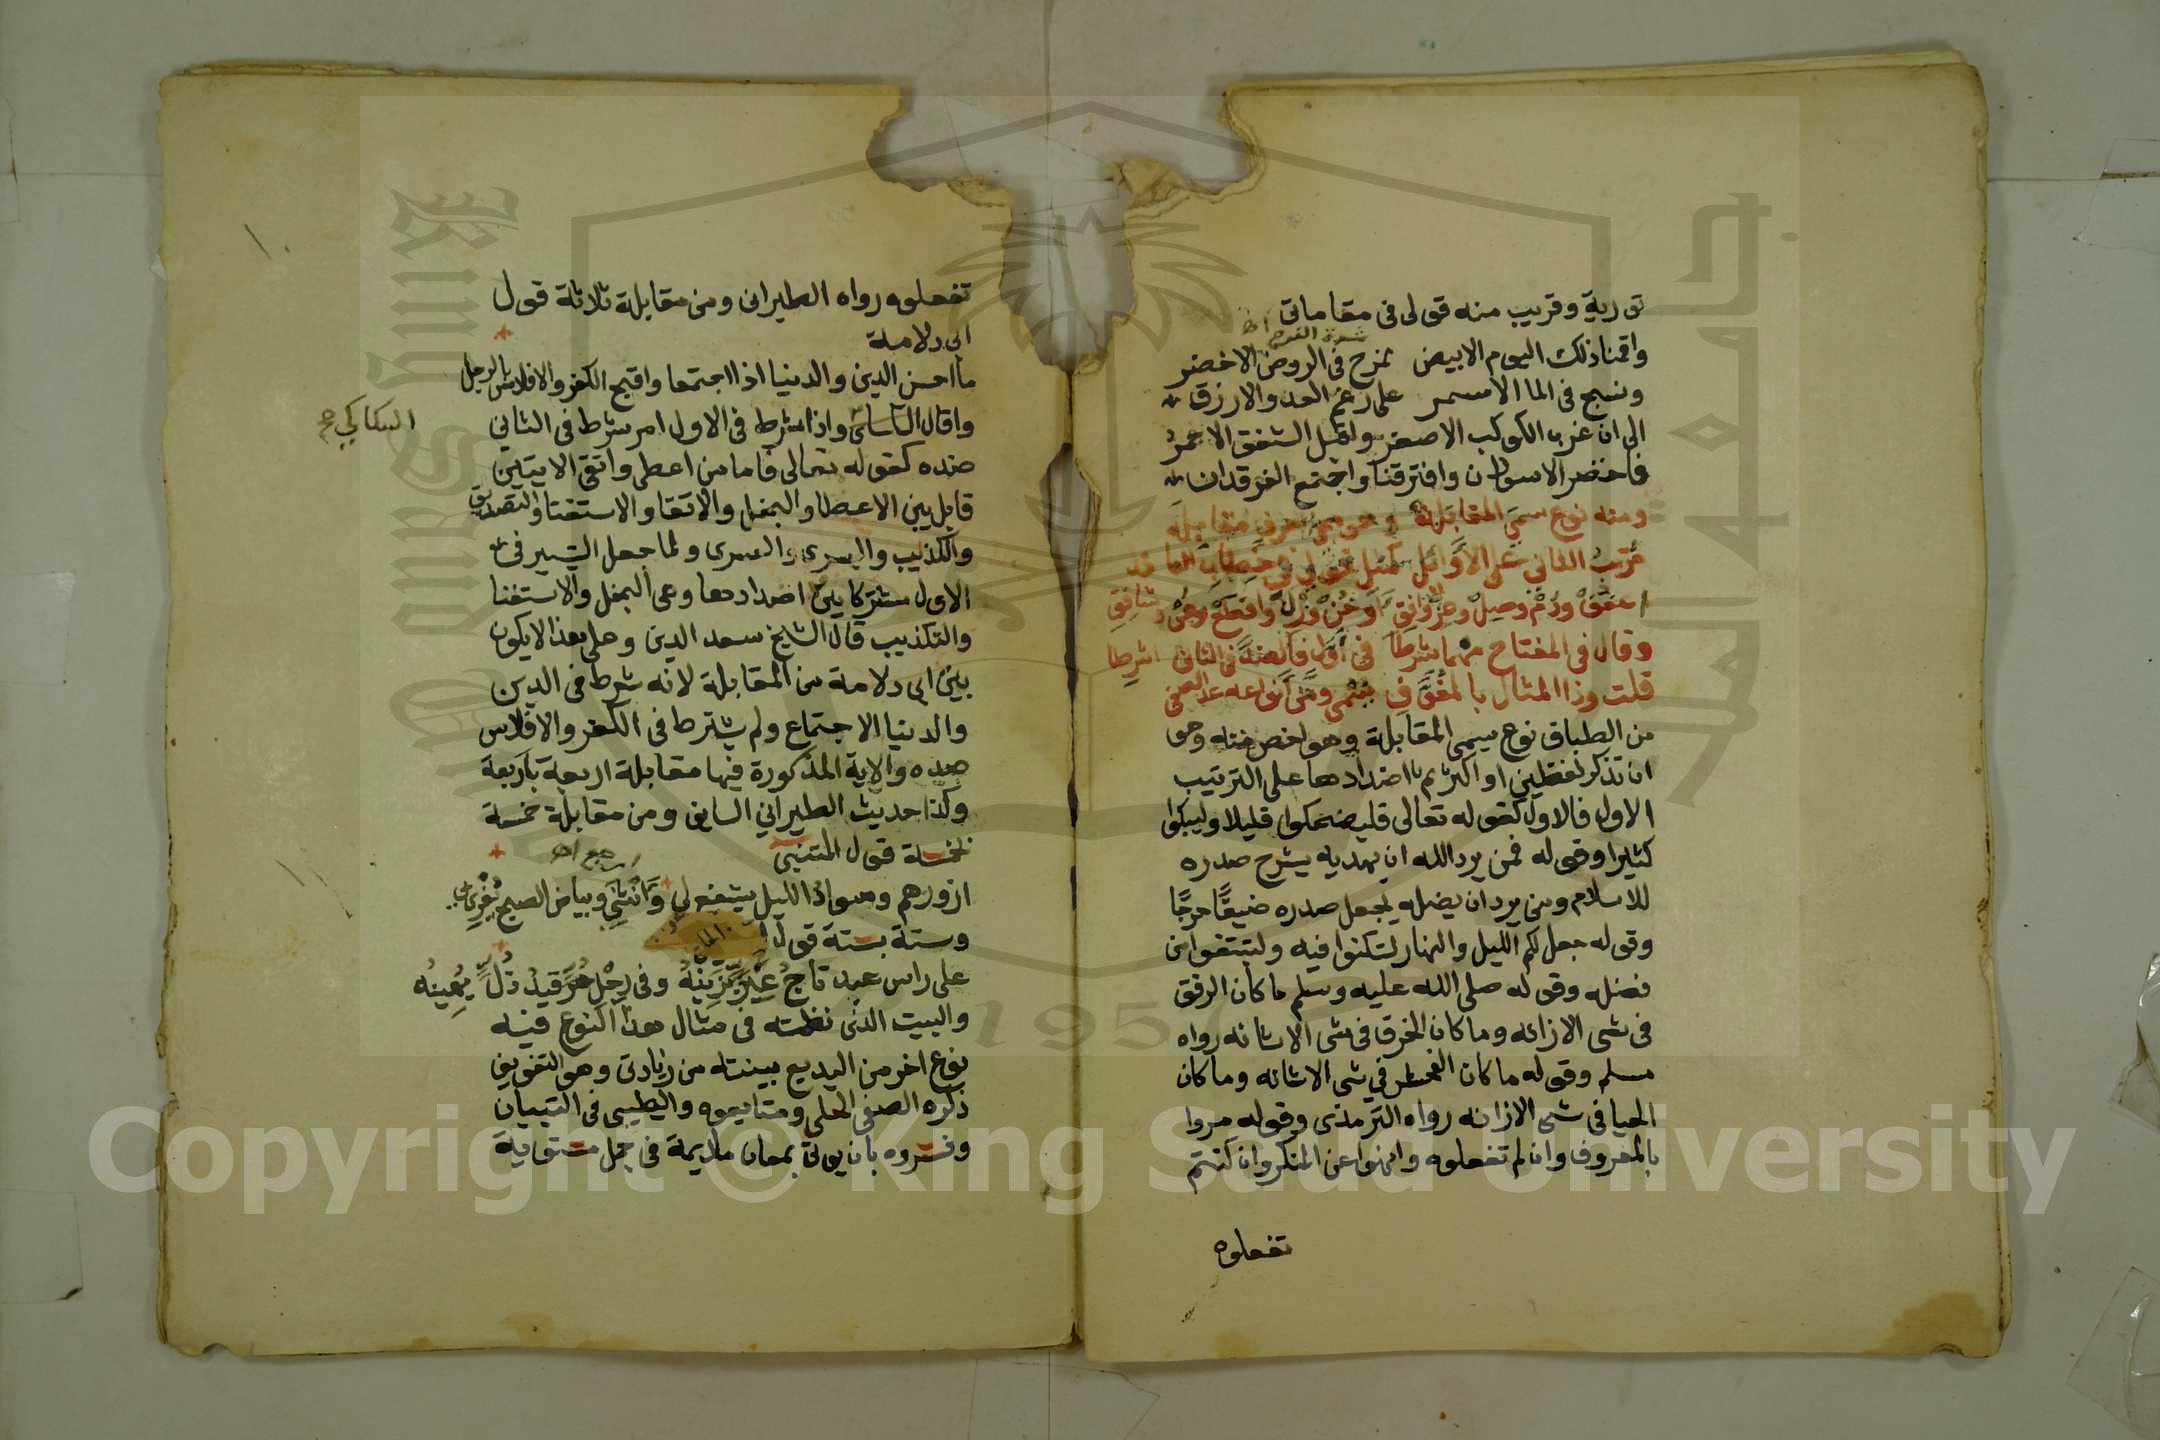 تورية وقريب منه قولى فى مقاماتى
واقمنا ذلك اليوم الابيض نمزح فى الروض الاخضر
ونسبح فى الما الاسمر على رغم العدو الازرق
الى ان غرب الكوكب الاصفر واقبل الشفق الاحمر
فاحضر الاسودان وافترقنا واجتمع الفرقدان
ومنه نوع سمى المقابلة
مرتب الثانى على الاوائل كمثل قولى فى خطاب
اعقق ودم وصل وعز وانق او خن وزل واقطع وهن وشانق
وقال فى المفتاح مهما شرطا فى اول فالضد فى الثانى اشرطا
قلت وذا المثال بالمفوف يسمى ومن انواعه عد الصفى
من الطباق نوع سمى المقابلة وهو اخص منه وهو
ان تذكر لفظين او اكثر ثم اضدادها على الترتيب
الاول فالاول كقوله تعالى فليضحكوا قليلا وليبكوا
كثيرا وقوله فمن يرد الله ان يهديه يشرح صدره
للاسلام ومن يرد ان يضله يجعل صدره ضيقا حرجا
وقوله جعل لكم الليل والنهار لتسكنوا فيه ولتبتغوا من
فضله وقوله صلى الله عليه وسلم ما كان الرفق
فى شى الا زانه وما كان الخرق فى شى الا شانه رواه
مسلم وقوله ما كان الفحش فى شى الا شانه وما كان
الحيا فى شى الا زانه رواه الترمذى وقوله مروا
بالمعروف وان لم تفعلوه وانهوا عن المنكر وان كنتم
تفعلوه
تفعلوه رواه الطبرانى ومن مقابلة ثلاثة قول
ابى دلامة
ما احسن الدين والدنيا اذا اجتمعا واقبح الكفر والافلاس بالرجل
واذا شرط فى الاول امر شرط فى الثانى
السكاكي
ضده كقوله تعالى فاما من اعطى واتقى الايتين
قابل بين الاعطا والبخل والاتقا والاستغنا والتصديق
والتكذيب واليسرى والعسرى ولما جعل التيسير فى
الاول مشتركا بين اضدادها وهى البخل والاستغنا
والتكذيب قال الشيخ سعد الدين وعلى هذا لا يكون
بيت ابى دلامة من المقابلة لانه شرط فى الدين
والدنيا الاجتماع ولم يشترط فى الكفر والافلاس
ضده والاية المذكورة فيها مقابلة اربعة باربعة
وكذا حديث الطبرانى السابق ومن مقابلة خمسة
بخمسة قول المتنبى
ازورهم وسواد الليل يشفع لى وانثنى وبياض الصبح يغرى بى
وستة بستة قول
على راس عبد تاج عز يزينه وفى رجل حر قيد ذل يهينه
والبيت الذى نظمته فى مثال هذا النوع فيه
نوع اخر من البديع بينته من زيادتى وهو التفويف
ذكره الصفى الحلى ومتابعوه والطيبى فى التبيان
وفسروه بان يوتى بمعان ملايمة فى جمل مستوية
Copyright © King Saud University
جامعة الملك سعود
1957